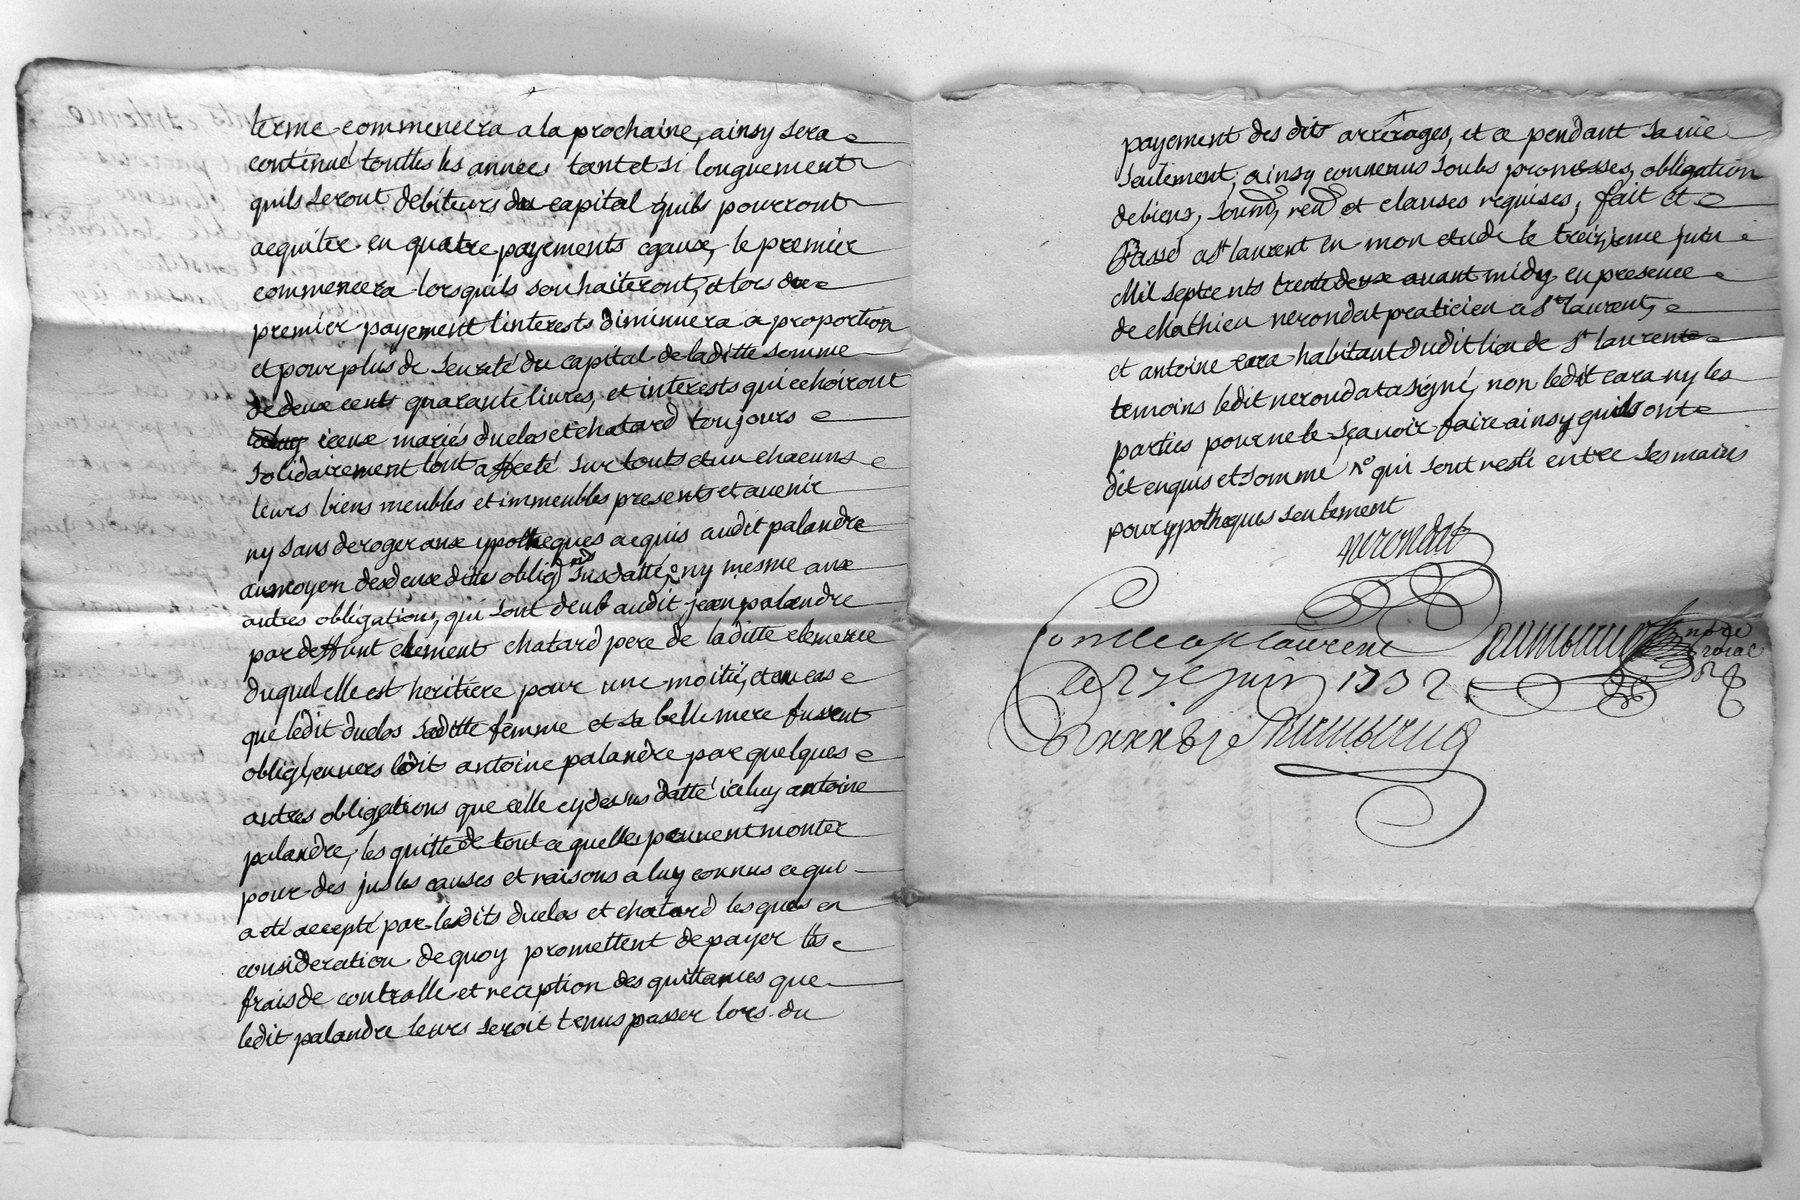 terme commencera a la prochaine, ainsy sera
continué touttes les années tant et si longuement
quils seront debiteurs du capital quils pourront
acquiter en quatre payements egaux, le premier
commencera lorsquils souhaiteront, et lors du
premier payement l'interests diminuera a proportion
et pour plus de seureté du capital de laditte somme
de deux cents quarante livres, et interests qui echoiront
iceux mariés duclos et chatard toujours
solidairement tout affecté sur touts et un chacuns
leurs biens meubles et immeubles presents et avenir
ny sans deroger aux ypotheques acquis audit palandre
au moyen des deux dites oblig susdatté, ny mesme aux
autres obligations, qui sont deub audit jean palandre
par deffunt clement chatard pere de laditte clemence
duquel elle est heritiere pour une moitié, et en cas
que ledit duclos saditte femme et sa belle mere fussent
obligé, envers ledit antoine palandre par quelques
autres obligations que celle cy dessus datté iceluy antoine
palandre, les quitte de tout ce quelles peuvent monter
pour des justes causes et raisons a luy connus ce qui
a eté accepté par lesdits duclos et chatard lesquels en
consideration de quoy promettent de payer les
frais de controlle et reception des quittances que
ledit palandre leurs seroit tenus passer lors du
payement des dits arrérages, et ce pendant sa vie
seulement, ainsy convenus soubs promesses, obligation
de biens, soum, ren et clauses requises, fait et
Passé a st laurent en mon etude le treizieme juin
Mil septcents trente deux avant midy en presence
de Mathieu nerondat praticien a st laurent,
et antoine cara habitant dudit lieu de st laurent
temoins ledit nerondat a signé, non ledit cara ny les
parties pour ne le sçavoir faire ainsy quils ont
dit enquis et sommé, qui sont resté entre ses mains
pour ypotheques seulement
nerondat
Controlle a st laurent
le 27e juin 1732